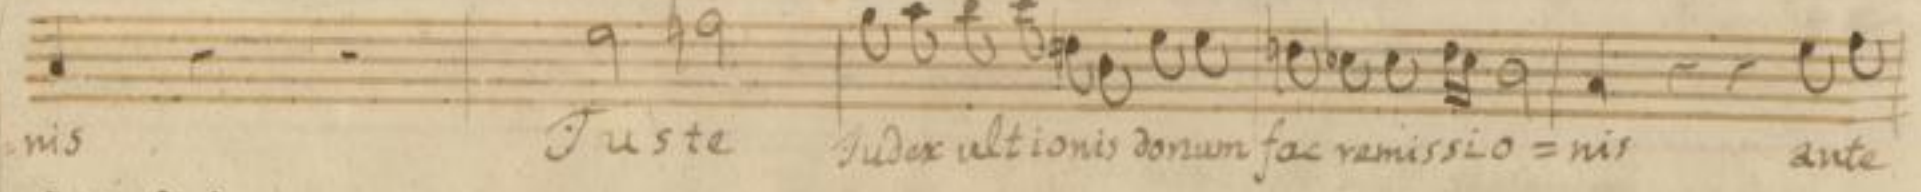 -nis Juste Judex ultionis donum fac remissio = nis ante